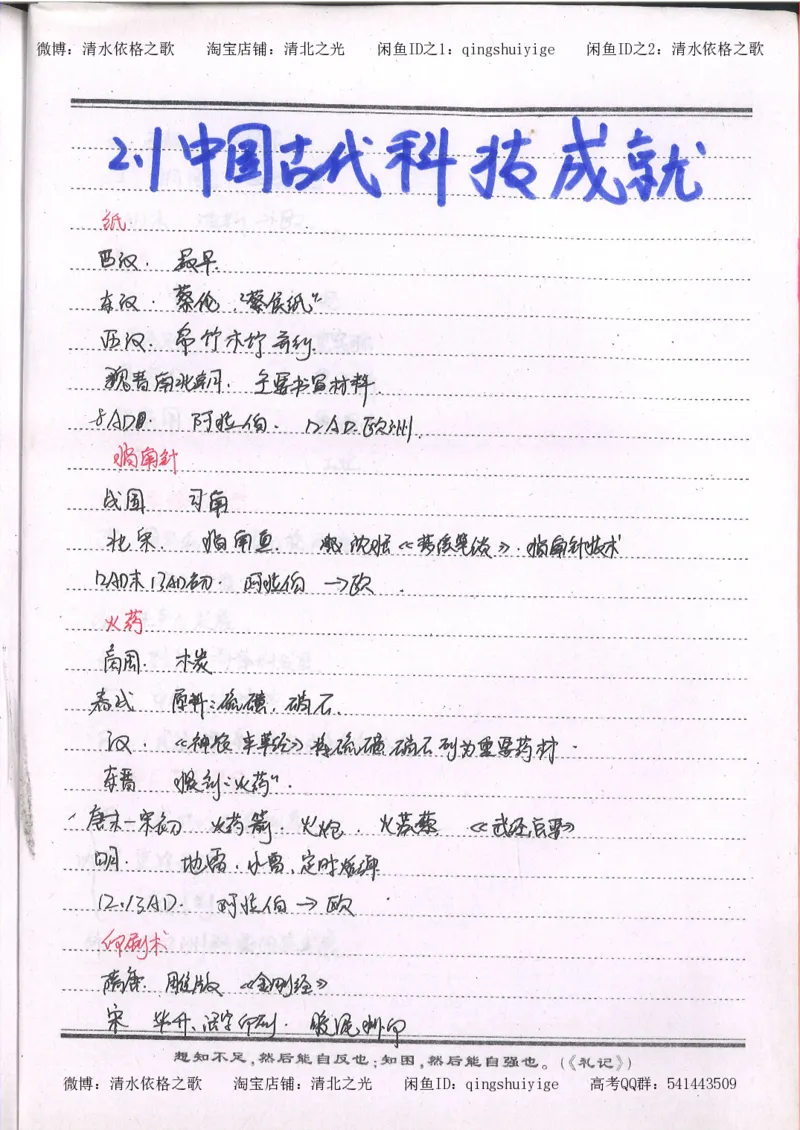 微博：清水依格之歌 淘宝店铺：清北之光 闲鱼ID之1：qingshuiyige 闲鱼ID之2：清水依格之歌
2.1 中国古代科技成就
纸
西汉. 最早.
东汉. 蔡伦."蔡侯纸"
西汉. 帛竹木竹
魏晋南北朝. 主要书写材料.
8AD. 阿拉伯. 12AD.欧洲.
指南针
战国 司南
北宋. 指南鱼. 沈括《梦溪笔谈》.指南针技术
12AD末13AD初. 阿拉伯→欧.
火药
商周. 木炭
春战 原料:硫磺.硝石.
汉.《神农本草经》将硫磺硝石列为重要药材.
东晋 "火药".
唐末—宋初 火药箭.火炮.火蒺藜《武经总要》
明. 地雷.水雷.定时炸弹
12.13AD. 阿拉伯→欧
印刷术
隋唐. 雕版《金刚经》
宋 毕升.活字印刷. 胶泥
想知不足,然后能自反也;知困,然后能自强也。(《礼记》)
微博：清水依格之歌 淘宝店铺：清北之光 闲鱼ID：qingshuiyige 高考QQ群：541443509